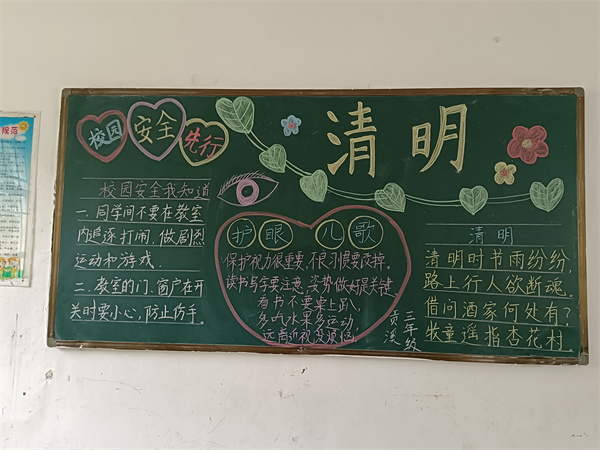 规范
校园
安全
先行
清明
校园安全我知道
一、同学间不要在教室
内追逐打闹、做剧烈
运动和游戏.
二、教室的门、窗户在开
关时要小心,防止伤手。
护眼儿歌
保护视力很重要,不良习惯要改掉。
读书写字要注意,姿势做好是关键
看书不要桌上趴,
多吃水果多运动,
远离近视没烦恼。
三年级
清明
清明时节雨纷纷,
路上行人欲断魂。
借问酒家何处有?
牧童遥指杏花村.